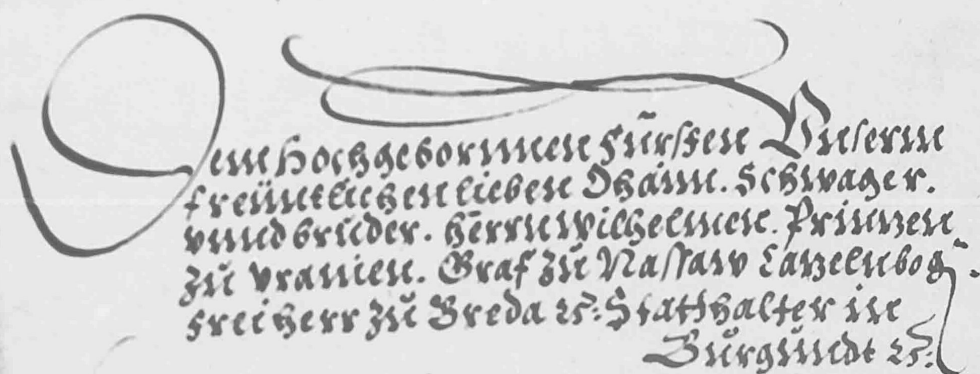 Dem Hochgebornnen Fürsten Unserm
freüntlichen lieben Ohaim. Schwager.
vnnd bruder. Herrn Wilhelmen. Printzen
zů Vranien. Graf zů Nassaw Catzelnbog:
freiherr zů Breda ꝛc: Statthalter in
Burgundt ꝛc: